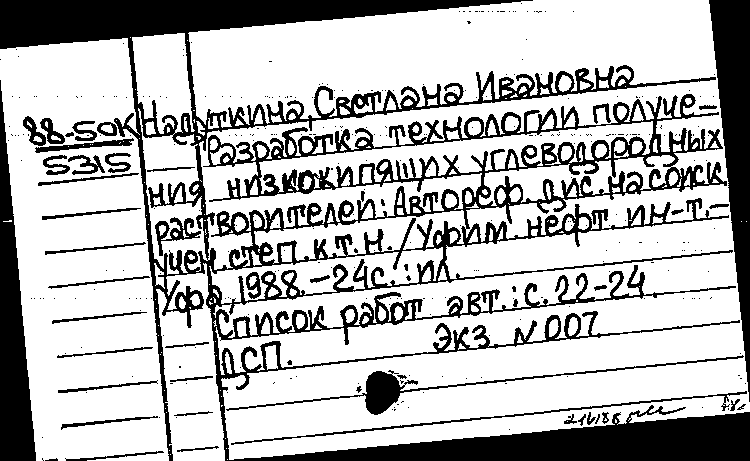 88-50К
5315
Надуткина, Светлана Ивановна
Разработка технологии получе-
ния низкокипящих углеводородных
растворителей: Автореф. дис. на соиск.
учен. степ. к.т.н. / Уфим. нефт. ин-т.-
Уфа, 1988.-24с.: ил.
Список работ авт.: с. 22-24.
ДСП. Экз. N 007